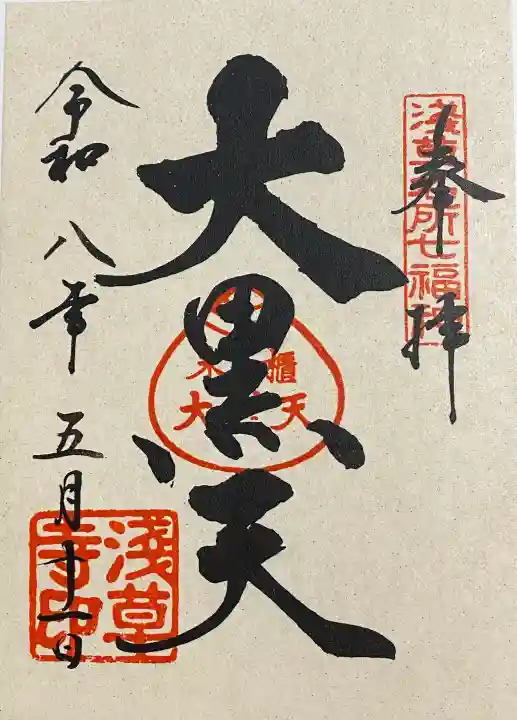 奉拝
浅草名所七福神
大黒天
米櫃
大黒天
令和八年五月十一日
浅草寺印